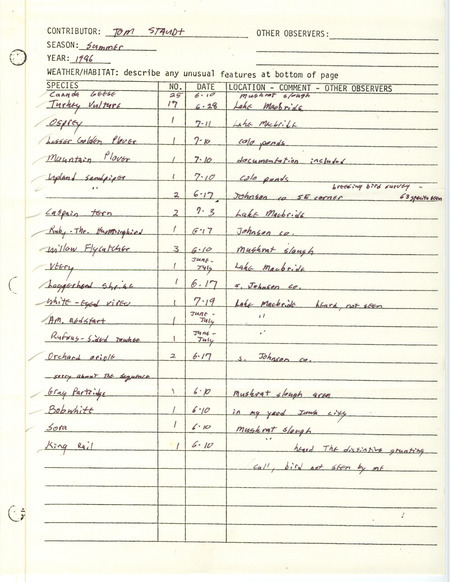 CONTRIBUTOR: TOM STAUDT OTHER OBSERVERS:
SEASON: Summer
YEAR: 1986
WEATHER/HABITAT: describe any unusual features at bottom of page
SPECIES NO. DATE LOCATION - COMMENT - OTHER OBSERVERS
Canada Geese 25 6-10 Muskrat slough
Turkey Vulture 17 6-28 Lake Macbride
Osprey 1 7-11 Lake Macbride
Lesser Golden Plover 1 7-10 cole ponds
Mountain Plover 1 7-10 documentation included
Upland sandpiper 1 7-10 cole ponds
breeding bird survey -
" 2 6-17 Johnson co SE corner 63 species seen
Caspain tern 2 7-3 Lake Macbride
Ruby-Thr. Hummingbird 1 6-17 Johnson co.
Willow Flycatcher 3 6-10 Muskrat slough
Veery 1 June-July Lake Macbride
Loggerhead Shrike 1 6-17 s. Johnson co.
White-Eyed vireo 1 7-19 Lake Macbride heard, not seen
Am. Redstart 1 June-July "
Rufous-Sided Towhee 1 June-July "
Orchard oriole 2 6-17 s. Johnson co.
sorry about the sequence
Gray Partridge 1 6-10 Muskrat slough area
Bobwhite 1 6-10 in my yard Iowa city
Sora 1 6-10 Muskrat slough
King Rail 1 6-10 " heard The distinctive grunting
call, bird not seen by me